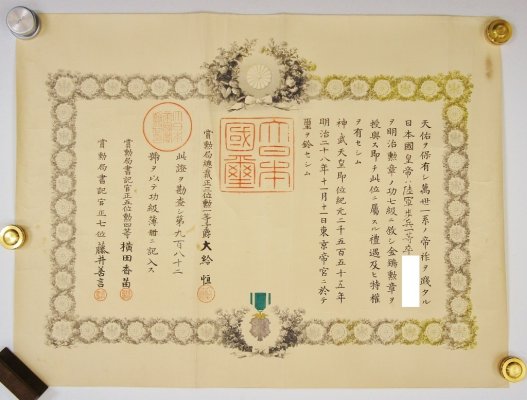 天佑ヲ保有シ萬世一系ノ帝祚ヲ踐タル
日本國皇帝ハ陸軍歩兵一等卒
ヲ明治勲章ノ功七級ニ敍シ金鵄勲章ヲ
授與ス即チ此位ニ屬スル禮遇及ヒ特權
ヲ有セシム
神武天皇即位紀元二千五百五十五年
明治二十八年十一月十一日東京帝宮ニ於テ
璽ヲ鈐セシム
大日本
國璽
賞勲局總裁正三位勲一等子爵 大給 恒
此證ヲ勘査シ第九百八十二
號ヲ以テ功級簿冊ニ記入ス
賞勲局書記官正五位勲四等 横田香苗
賞勲局書記官正七位 藤井善言